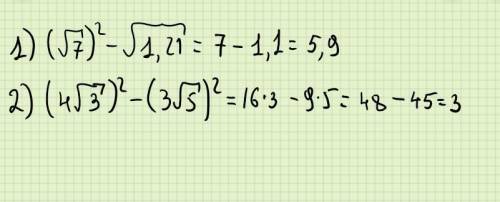 1) (√7)² - √1,21 = 7 - 1,1 = 5,9
2) (4√3)² - (3√5)² = 16·3 - 9·5 = 48 - 45 = 3